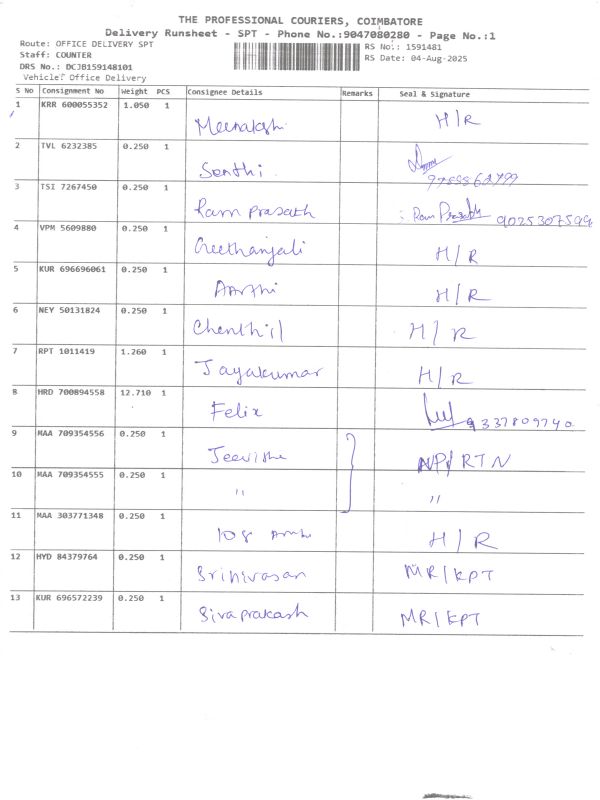 THE PROFESSIONAL COURIERS, COIMBATORE
Delivery Runsheet - SPT - Phone No.:9047080280 - Page No.:1
Route: OFFICE DELIVERY SPT RS No: 1591481
Staff: COUNTER RS Date: 04-Aug-2025
DRS No.: DCJB159148101
Vehicle: Office Delivery
S No Consignment No Weight PCS Consignee Details Remarks Seal & Signature
1 KRR 600055352 1.050 1 Meenakshi H/R
2 TVL 6232385 0.250 1 Senthi
3 TSI 7267450 0.250 1 Ram prasath Ram Prasath 9025307599
4 VPM 5609880 0.250 1 Geethanjali H/R
5 KUR 696696061 0.250 1 Aarthi H/R
6 NEY 50131824 0.250 1 Chenthil H/R
7 RPT 1011419 1.260 1 Jayakumar H/R
8 HRD 700894558 12.710 1 Felix 9337809740
9 MAA 709354556 0.250 1 NP/RTN
10 MAA 709354555 0.250 1 " "
11 MAA 303771348 0.250 1 108 H/R
12 HYD 84379764 0.250 1 Srinivasan MR/KPT
13 KUR 696572239 0.250 1 Sivaprakash MR/KPT